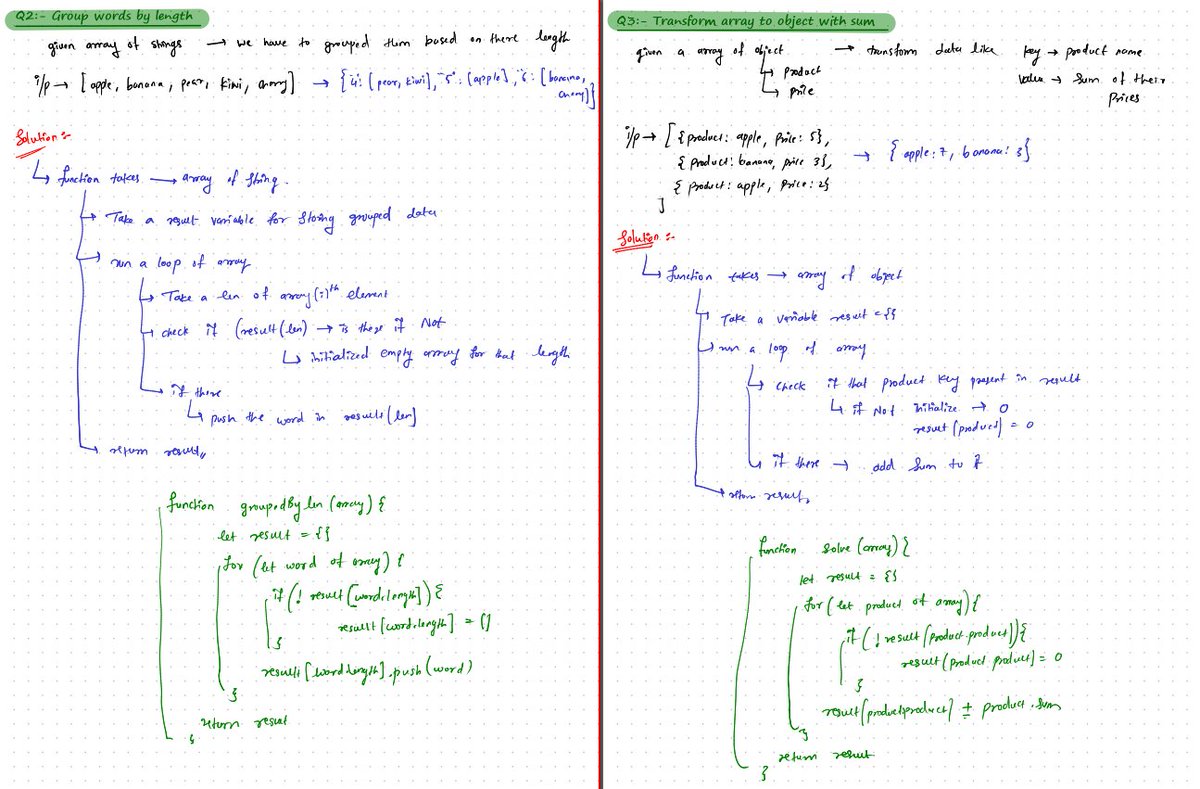 Q2:- Group words by length
given array of strings → we have to grouped them based on there length
i/p → [apple, banana, pear, kiwi, cherry] → {"4": [pear, kiwi], "5": [apple], "6": [banana,
cherry]}
Solution:-
function takes → array of string.
Take a result variable for storing grouped data
run a loop of array
Take a len of array(i)th element
check if (result(len) → is there if Not
initialized empty array for that length
if there
push the word in result[len]
return result
function groupedBylen (array) {
let result = {}
for (let word of array) {
if (! result [word.length]) {
result [word.length] = []
}
result [word.length].push (word)
}
return result
}
Q3:- Transform array to object with sum
given a array of object → transform data like key → product name
product value → sum of their
price prices
i/p → [ {product: apple, price: 5},
{product: banana, price 3}, → {apple: 7, banana: 3}
{ product: apple, price: 2}
]
Solution:-
function takes → array of object
Take a variable result = {}
run a loop of array
check if that product key present in result
if Not initialize → 0
result [product] = 0
if there → add sum to it
return result
function solve (array) {
let result = {}
for (let product of array) {
if (! result [product.product]) {
result [product.product] = 0
}
result [product.product] += product.sum
}
return result
}